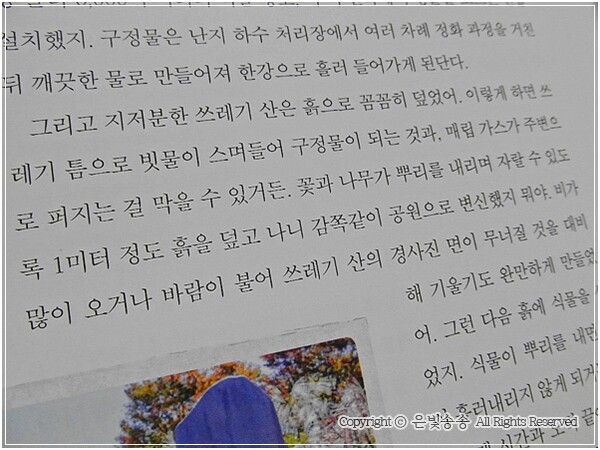 설치했지. 구정물은 난지 하수 처리장에서 여러 차례 정화 과정을 거친
뒤 깨끗한 물로 만들어져 한강으로 흘러 들어가게 된단다.
그리고 지저분한 쓰레기 산은 흙으로 꼼꼼히 덮었어. 이렇게 하면 쓰
레기 틈으로 빗물이 스며들어 구정물이 되는 것과, 매립 가스가 주변으
로 퍼지는 걸 막을 수 있거든. 꽃과 나무가 뿌리를 내리며 자랄 수 있도
록 1미터 정도 흙을 덮고 나니 감쪽같이 공원으로 변신했지 뭐야. 비가
많이 오거나 바람이 불어 쓰레기 산의 경사진 면이 무너질 것을 대비
해 기울기도 완만하게 만들었
어. 그런 다음 흙에 식물을
었지. 식물이 뿌리를 내면
흘러내리지 않게 되거
시간과
Copyright ⓒ 은빛송송 All Rights Reserved